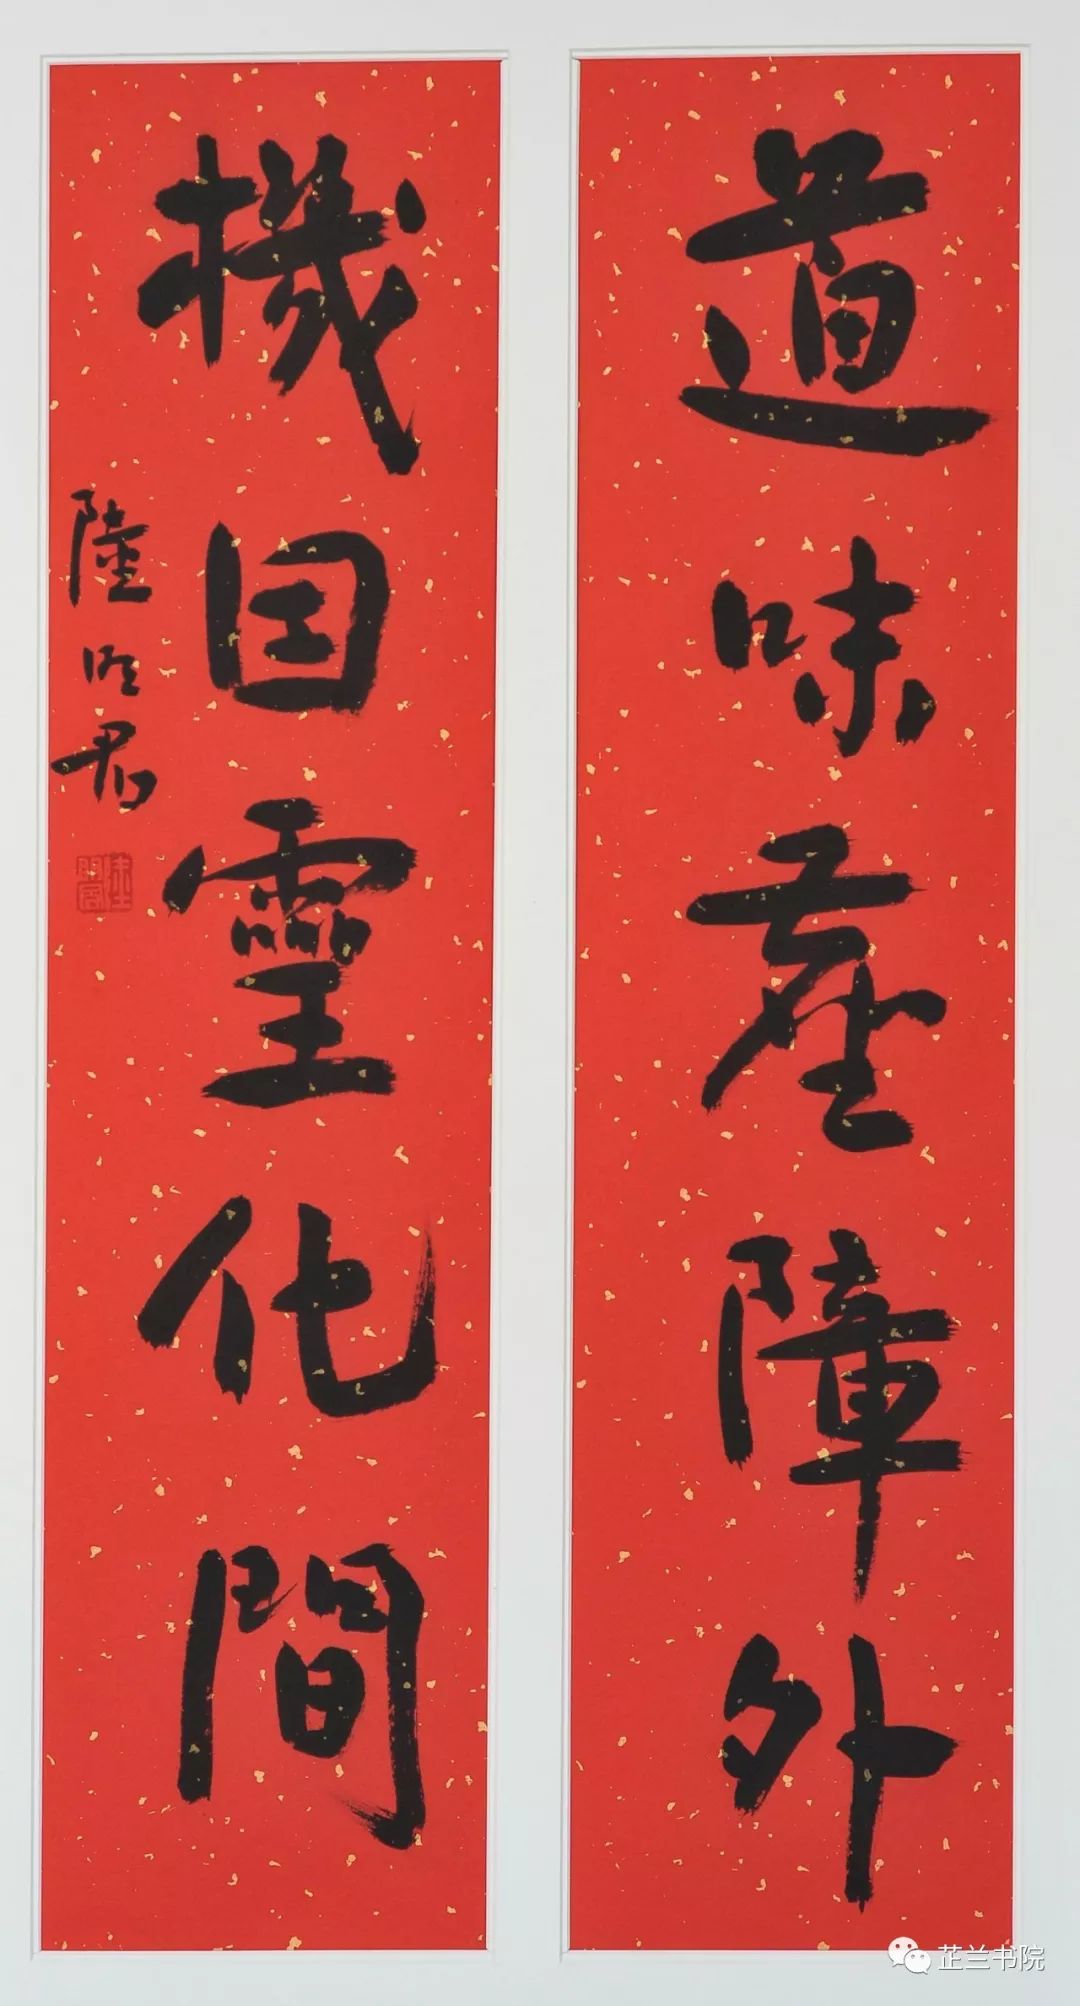 道味塵障外
機因靈化間
陸明君
芷兰书院